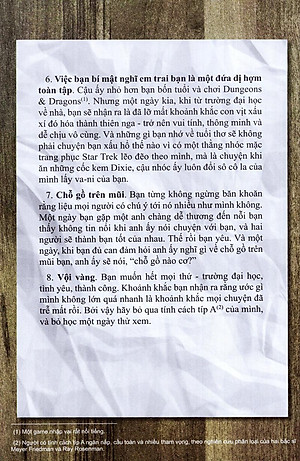 6. Việc bạn bí mật nghĩ em trai bạn là một đứa dị hợm
toàn tập. Cậu ấy nhỏ hơn bạn bốn tuổi và chơi Dungeons
& Dragons(1). Nhưng một ngày kia, khi từ trường đại học
về nhà, bạn sẽ nhận ra là đã lỡ mất khoảnh khắc con vịt xấu
xí đó hóa thành thiên nga - trở nên vui tính, thông minh và
dễ chịu vô cùng. Và những gì bạn nhớ về tuổi thơ sẽ không
phải chuyện bạn xấu hổ thế nào vì có một thằng nhóc mặc
trang phục Star Trek lẽo đẽo theo mình, mà là chuyện khi
ăn những cốc kem Dixie, cậu nhóc ấy luôn đổi sô cô la của
mình lấy va-ni của bạn.
7. Chỗ gồ trên mũi. Bạn từng không ngừng băn khoăn
rằng liệu mọi người có chú ý tới nó nhiều như mình không.
Một ngày bạn gặp một anh chàng dễ thương đến nỗi bạn
thấy không tin nổi khi anh ấy nói chuyện với bạn, và hai
người sẽ thành bạn tốt của nhau. Thế rồi bạn yêu. Và một
ngày, khi bạn đủ can đảm hỏi anh ấy nghĩ gì về chỗ gồ trên
mũi bạn, anh ấy sẽ nói, “chỗ gồ nào cơ?”
8. Vội vàng. Bạn muốn hết mọi thứ - trường đại học,
tình yêu, thành công. Khoảnh khắc bạn nhận ra rằng ước gì
mình không lớn quá nhanh là khoảnh khắc mọi chuyện đã
trễ mất rồi. Bởi vậy hãy bỏ qua tính cách típ A(2) của mình,
và bỏ học một ngày thử xem.
(1) Một game nhập vai rất nổi tiếng.
(2) Người có tính cách típ A ngăn nắp, cầu toàn và nhiều tham vọng, theo nghiên cứu phân loại của hai bác sĩ
Meyer Friedman và Ray Rosenman.